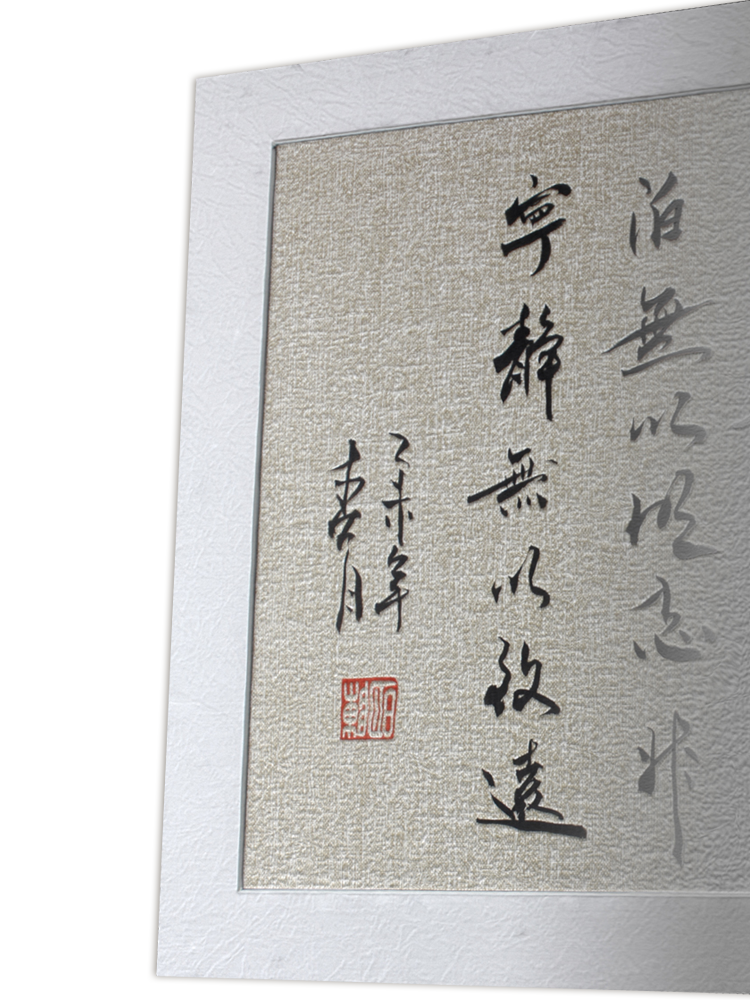 泊無以明志非
寧靜無以致遠
乙未年
春月